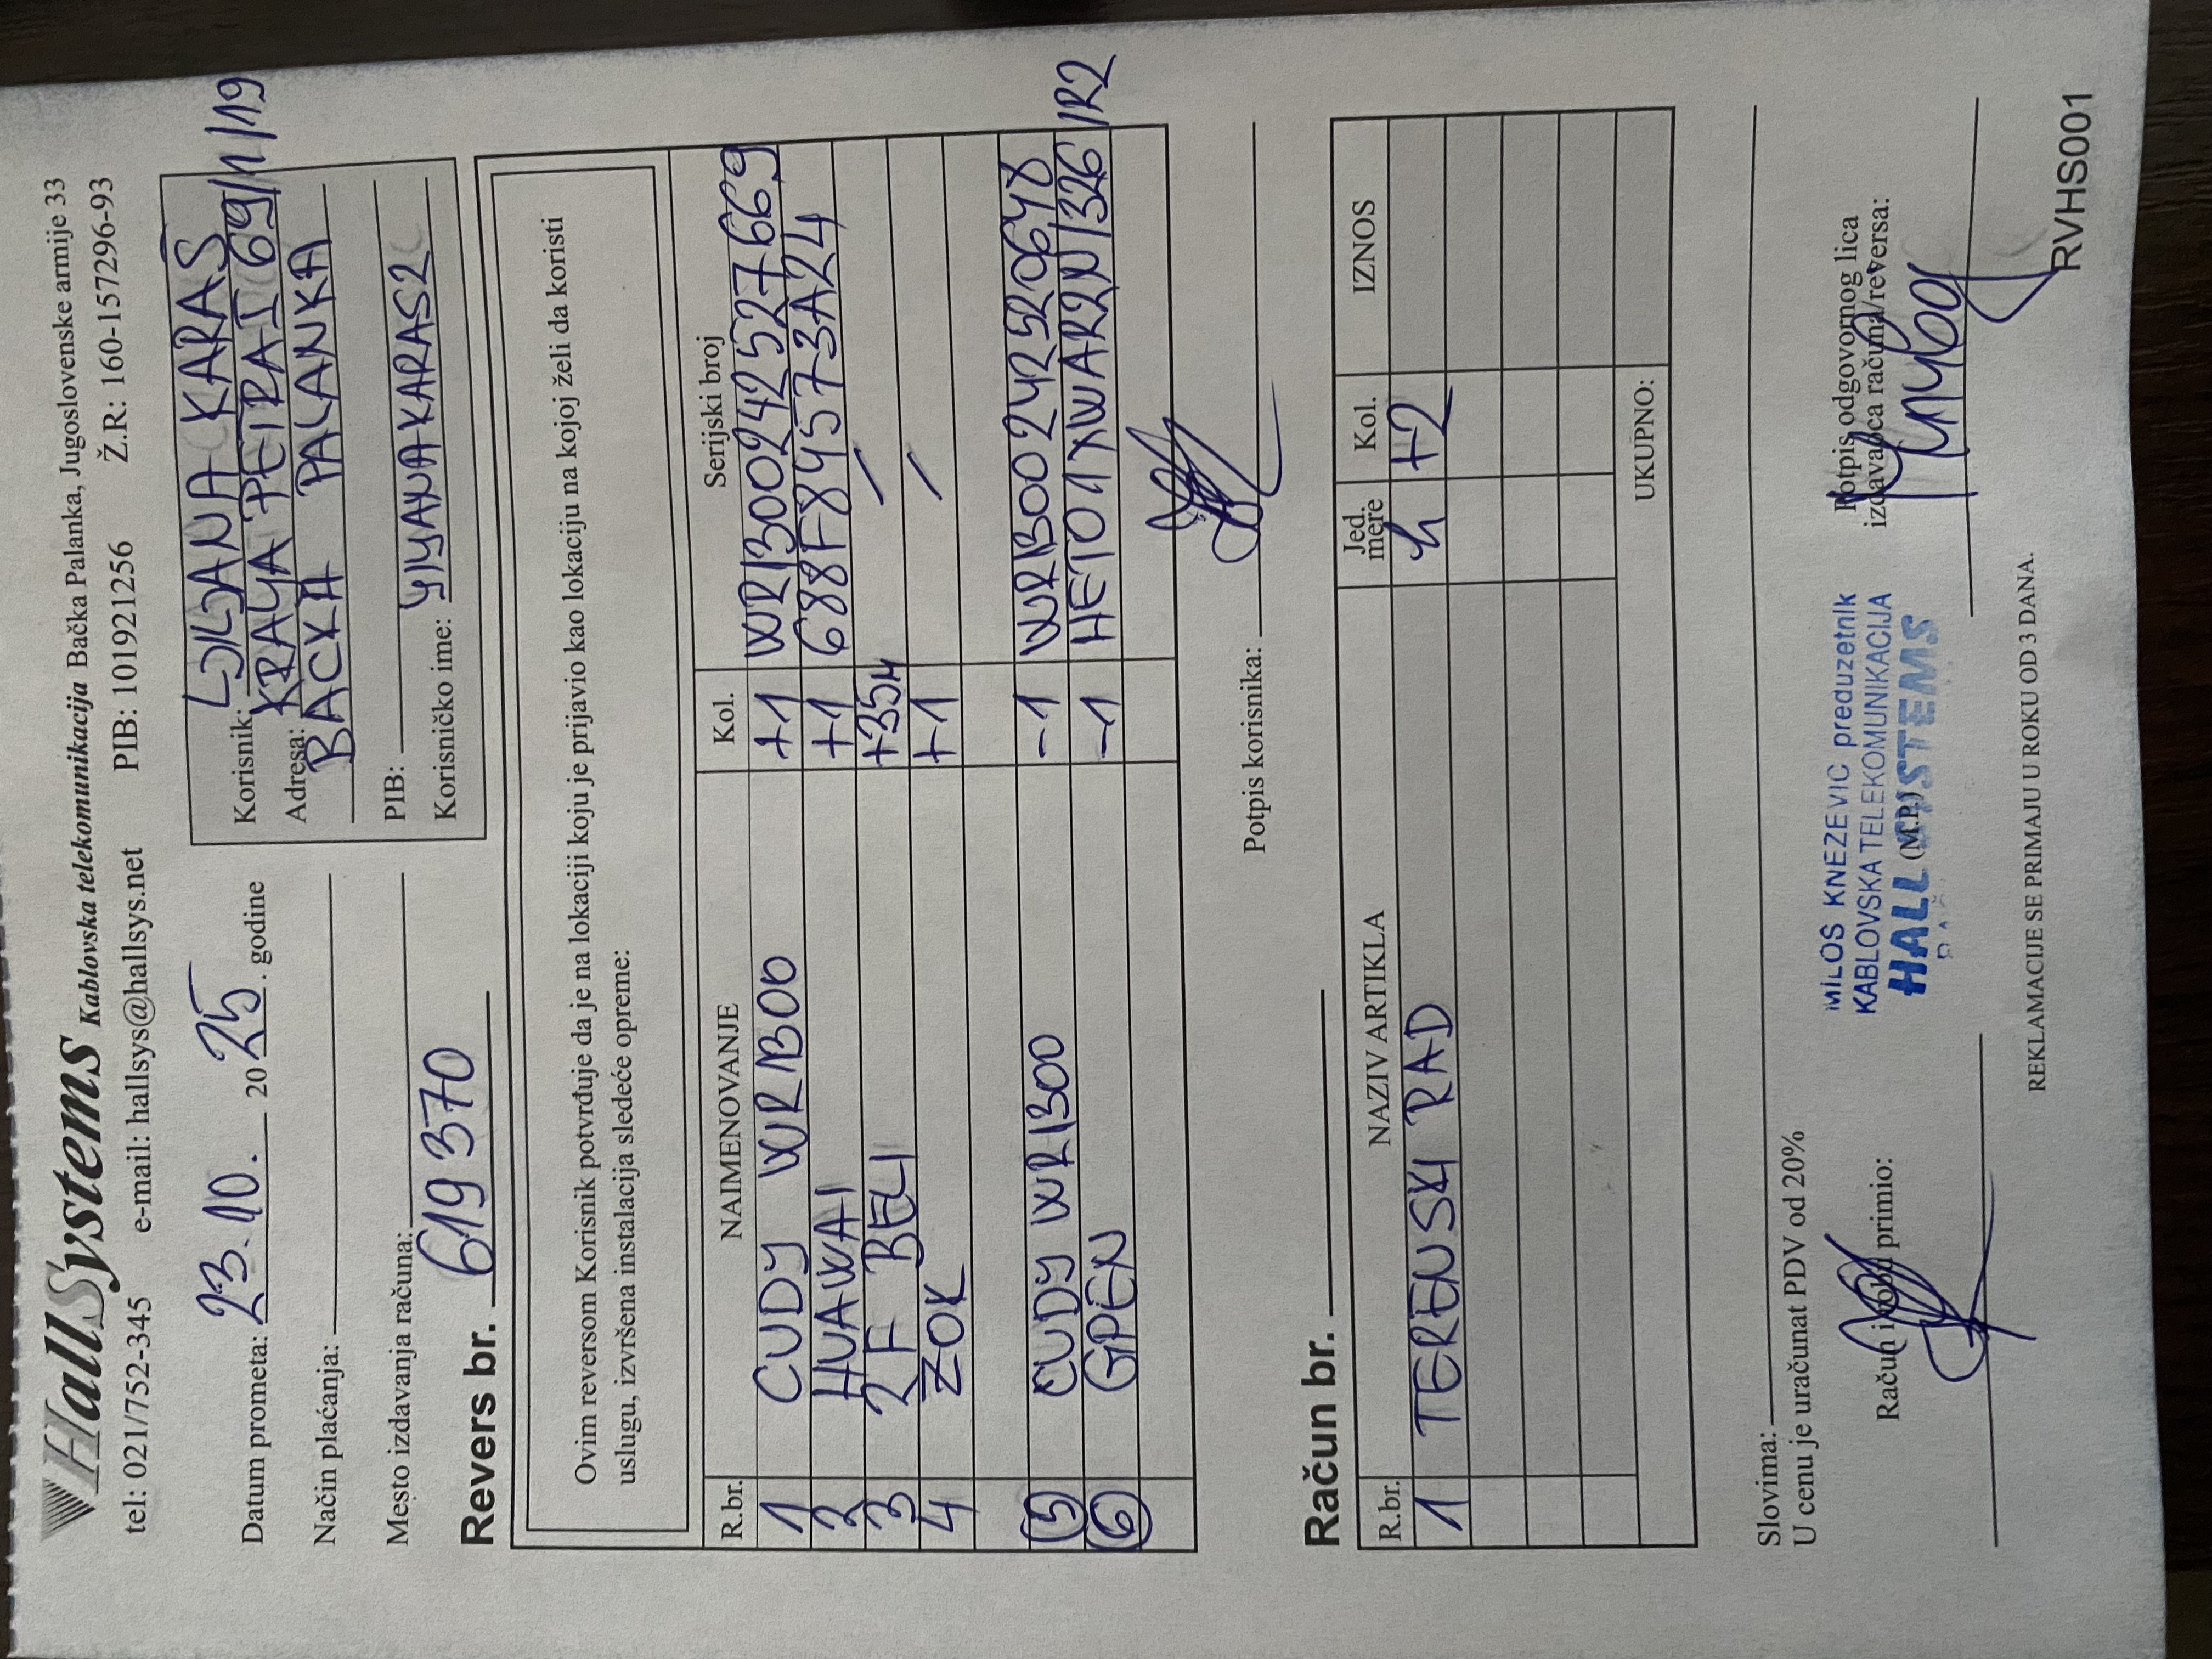 HallSystems Kablovska telekomunikacija Bačka Palanka, Jugoslovenske armije 33
tel: 021/752-345 e-mail: hallsys@hallsys.net PIB: 101921256 Ž.R: 160-157296-93
Datum prometa: 23.10. 2025. godine
Način plaćanja:
Mesto izdavanja računa:
Korisnik: LJILJANA KARAS
Adresa: KRALJA PETRA I 69/1/19
BACKA PALANKA
PIB:
Korisničko ime: LJILJANAKARAS2
Revers br. 619370
Ovim reversom Korisnik potvrđuje da je na lokaciji koju je prijavio kao lokaciju na kojoj želi da koristi
uslugu, izvršena instalacija sledeće opreme:
R.br. NAIMENOVANJE Kol. Serijski broj
1 CUDY WR1300 +1 WR13002425527669
2 HUAWAI +1 688F84573A24
3 2F BELI +35M /
4 ZOK +1 /
5 CUDY WR1300 -1 WR1300242520648
6 GPEN -1 HET01XWAR2N1326/R2
Potpis korisnika:
Račun br.
R.br. NAZIV ARTIKLA Jed. mere Kol. IZNOS
1 TERENSKI RAD h +2
UKUPNO:
Slovima:
U cenu je uračunat PDV od 20%
Račun i robu primio:
MILOS KNEZEVIC preduzetnik
KABLOVSKA TELEKOMUNIKACIJA
HALL SYSTEMS
(M.P.)
Potpis odgovornog lica
izdavaoca računa/reversa:
REKLAMACIJE SE PRIMAJU U ROKU OD 3 DANA.
RVHS001